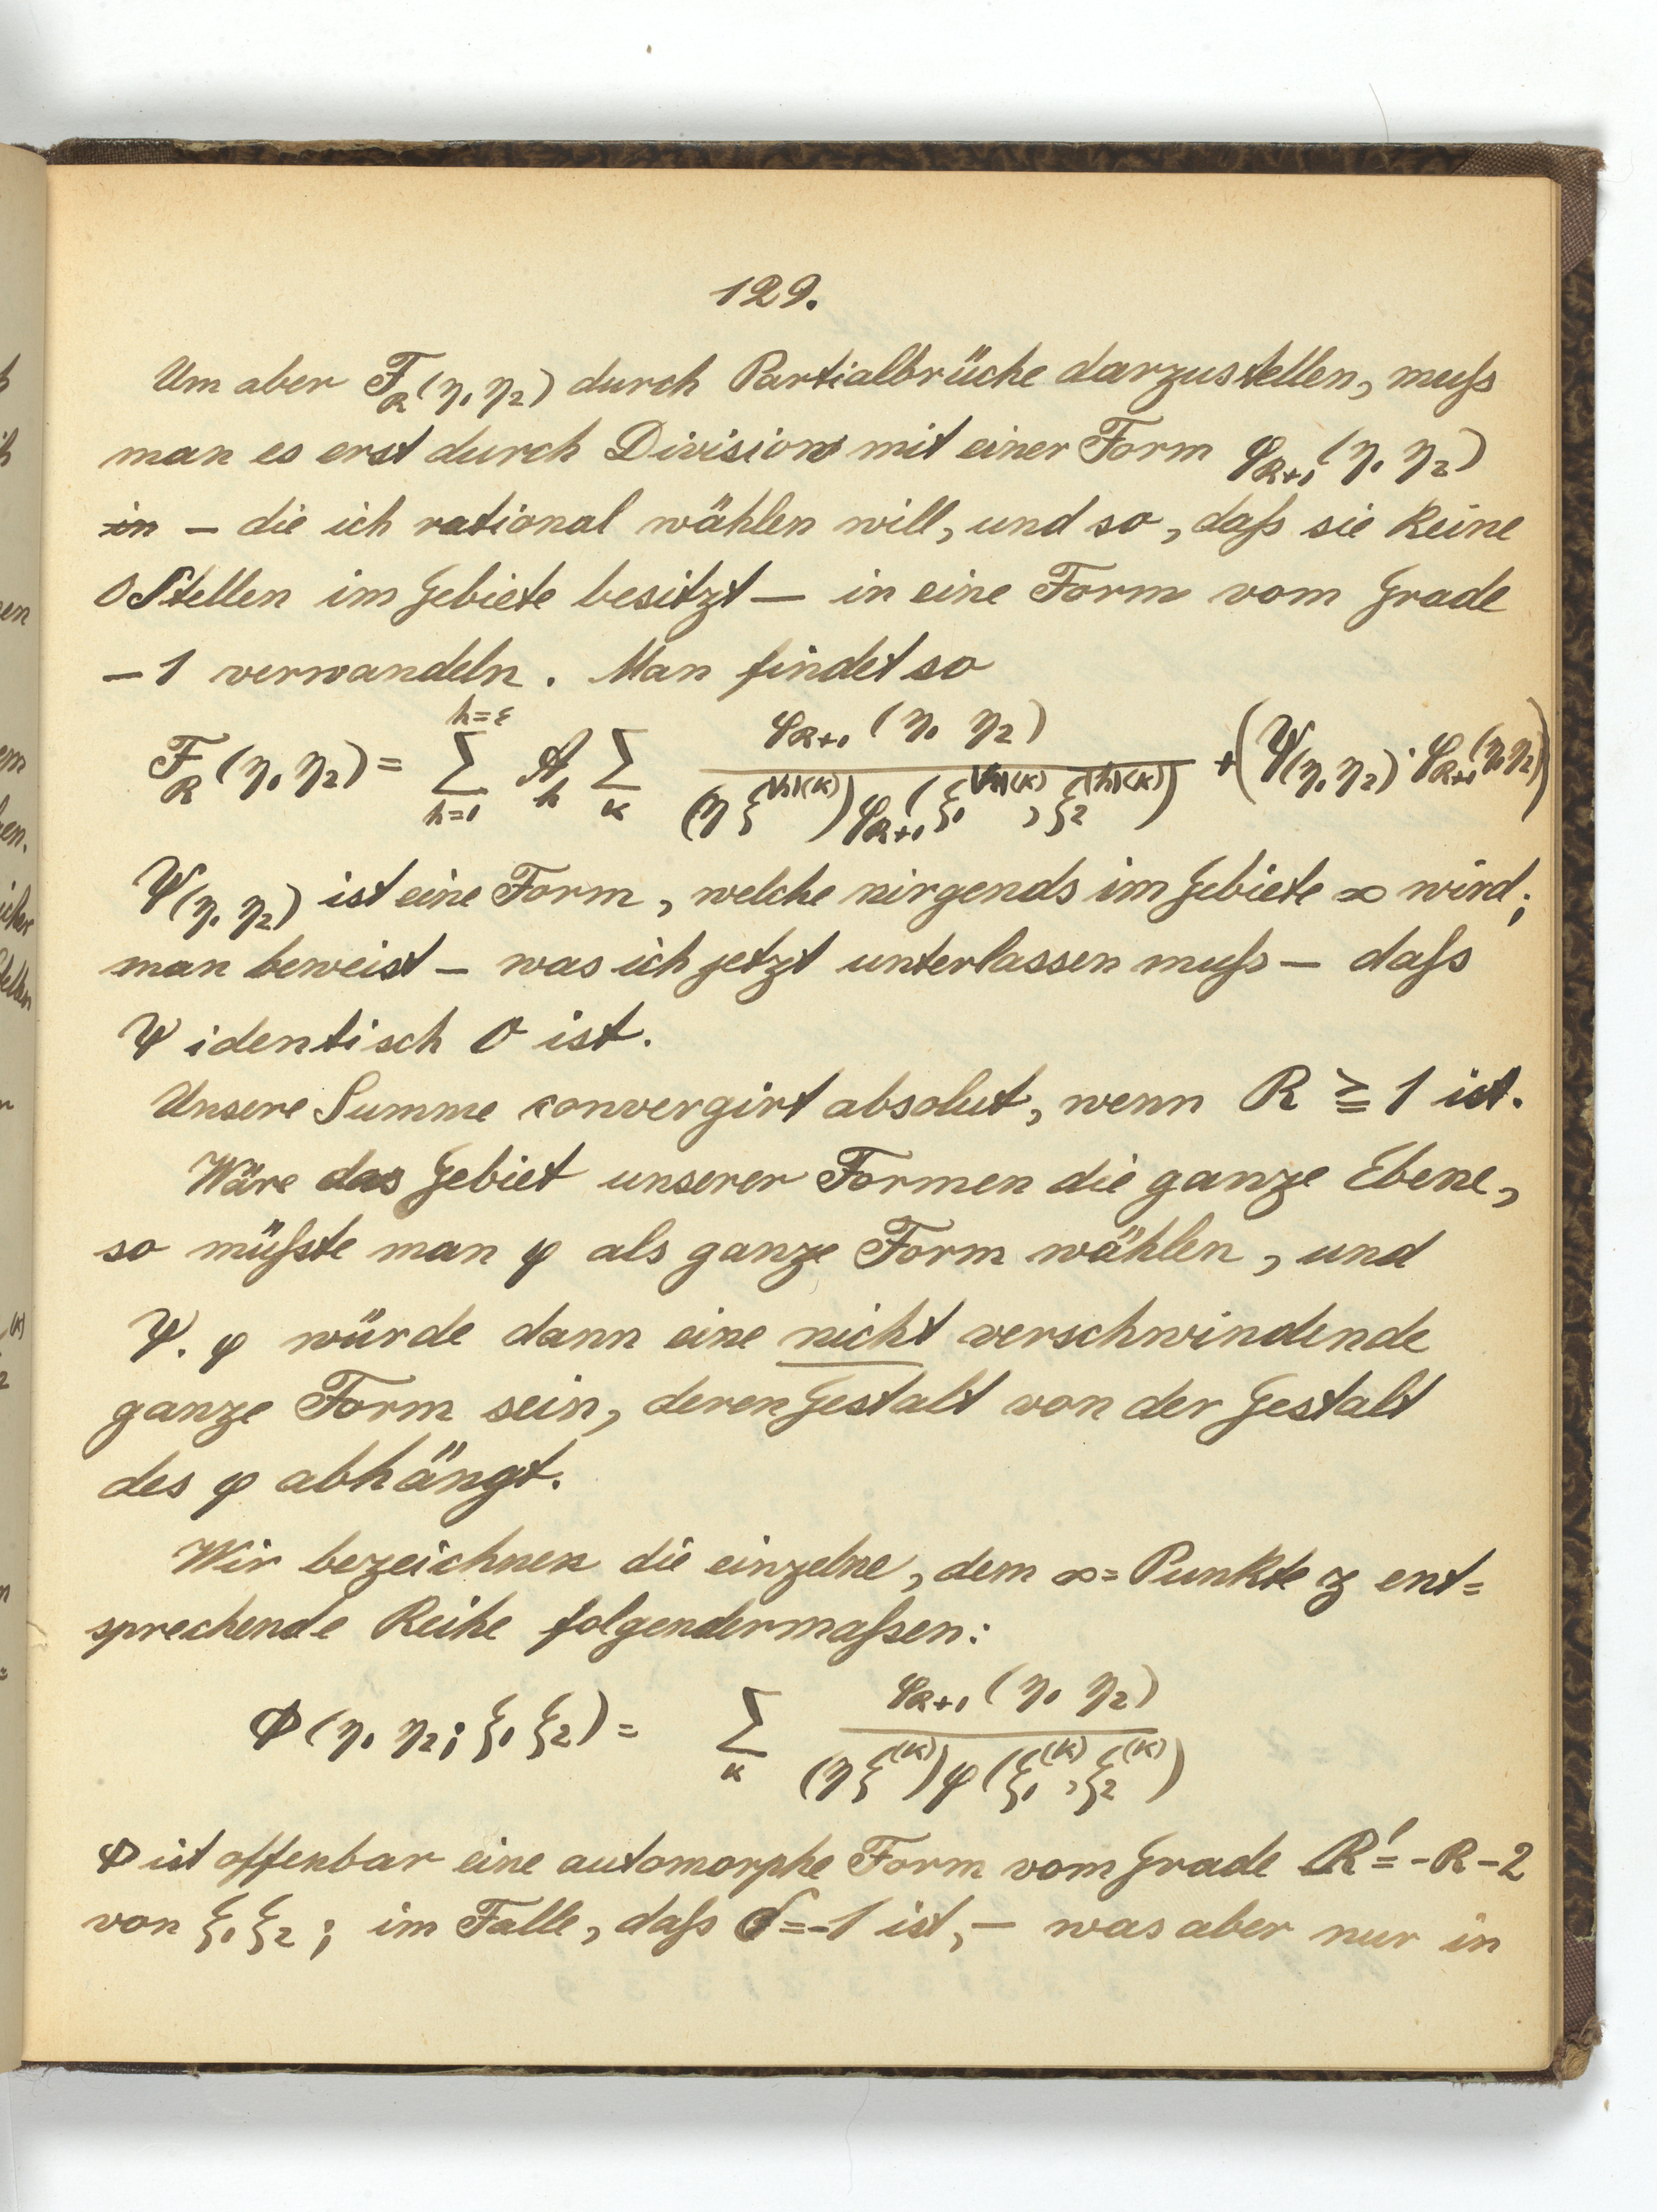 129.
Um aber F_R(η₁ η₂) durch Partialbrüche darzustellen, muſs
man es erst durch Division mit einer Form φ_{R+1}(η₁ η₂)
in – die ich rational wählen will, und so, daſs sie keine
0Stellen im Gebiete besitzt – in eine Form vom Grade
–1 verwandeln. Man findet so
F_R(η₁ η₂) = ∑_{h=1}^{h=ε} A_h ∑_κ φ_{R+1}(η₁ η₂) / (η ξ^{(h)(κ)}) φ_{R+1}(ξ₁^{(h)(κ)}, ξ₂^{(h)(κ)}) + (Ψ(η₁ η₂) · φ_{R+1}(η₁ η₂))
Ψ(η₁ η₂) ist eine Form, welche nirgends im Gebiete ∞ wird;
man beweist – was ich jetzt unterlassen muſs – daſs
Ψ identisch 0 ist.
Unsere Summe convergirt absolut, wenn R ≧ 1 ist.
Wäre das Gebiet unserer Formen die ganze Ebene,
so müſste man φ als ganze Form wählen, und
Ψ. φ würde dann eine nicht verschwindende
ganze Form sein, deren Gestalt von der Gestalt
des φ abhängt.
Wir bezeichnen die einzelne, dem ∞=Punkte z ent=
sprechende Reihe folgendermaſsen:
Φ(η₁ η₂; ξ₁ ξ₂) = ∑_κ φ_{R+1}(η₁ η₂) / (η ξ^{(κ)}) φ(ξ₁^{(κ)}, ξ₂^{(κ)})
Φ ist offenbar eine automorphe Form vom Grade R' = -R-2
von ξ₁ ξ₂; im Falle, daſs σ = -1 ist, – was aber nur in